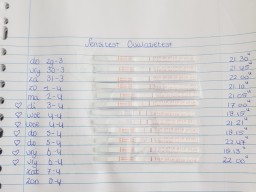 Sensitest Ovulatietest
do 29-3 21.30
vrij 30-3 21.45
za 31-3 22.00
zo 1-4 21.10
ma 2-4 21.05
♡ di 3-4 17.00
♡ woe 4-4 19.15
♡ woe 4-4 21.21
♡ do 5-4 19.15
♡ do 5-4 22.47
♡ vrij 6-4 19.15
♡ vrij 6-4 22.00
zat 7-4
zon 8-4